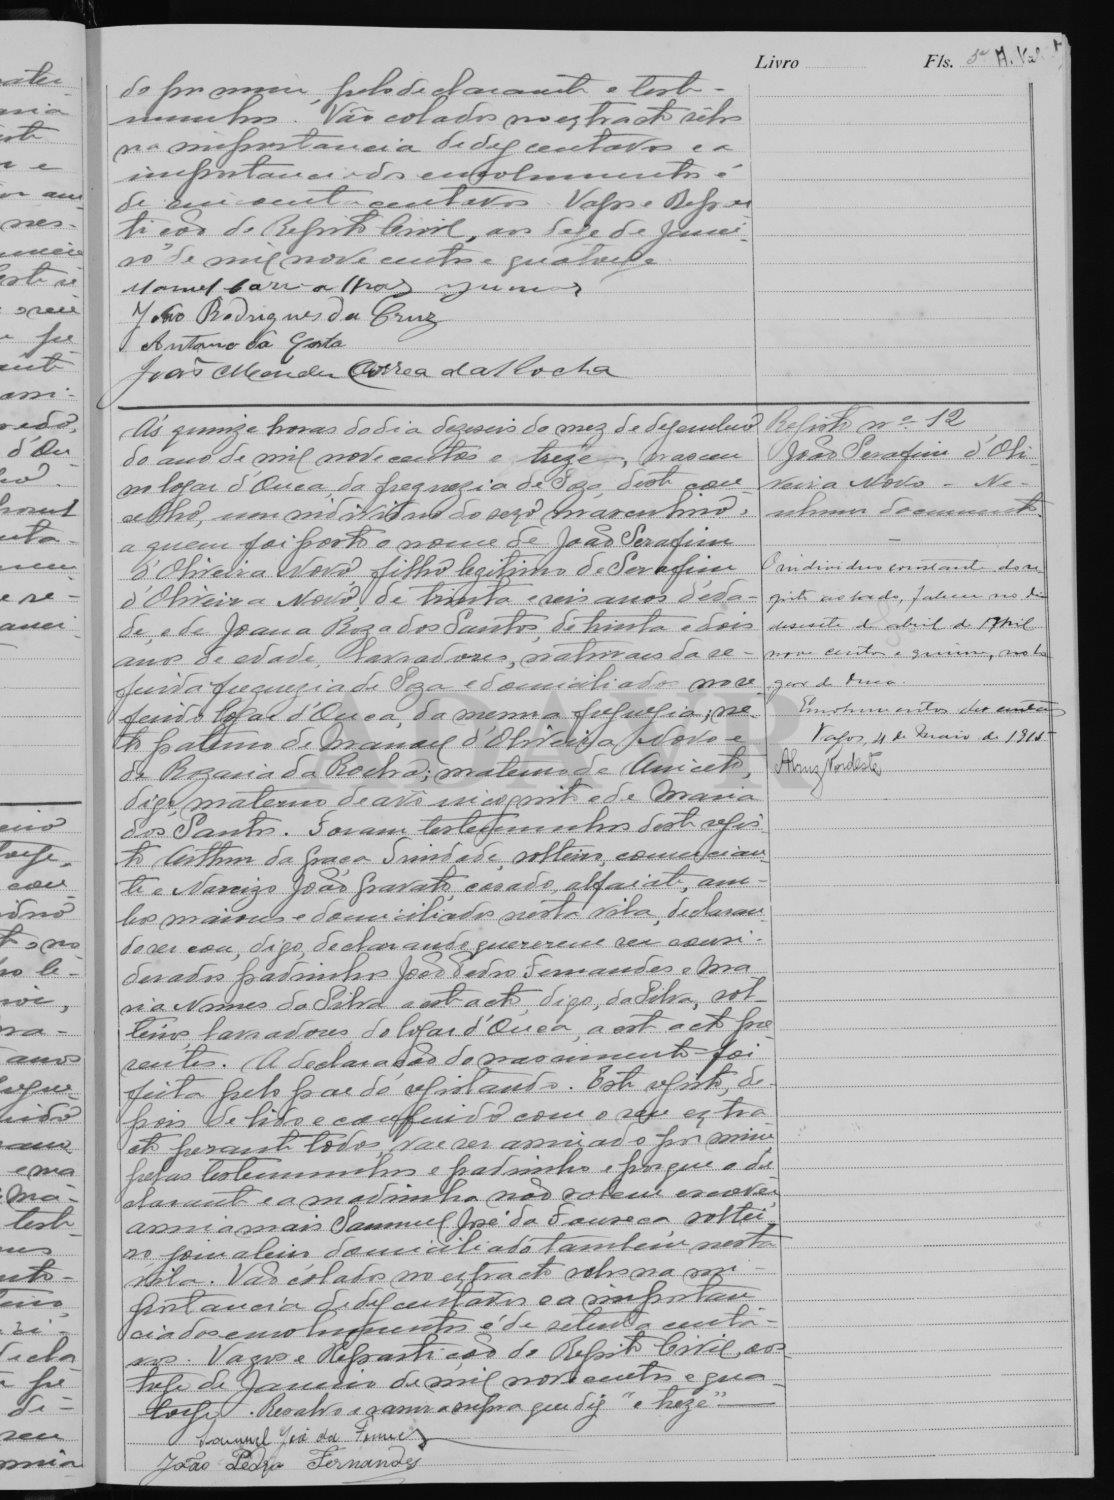 Livro Fls. 5
do por mim, pelo declarante e teste-
munhas. Vão colados no extracto sêlos
na importancia de dez centavos e a
importancia dos emolumentos é
de cincoenta centavos. Vagos e Repar-
tição do Registo Civil, aos de Janei-
ro de mil nove centos e quatorze.
João Rodrigues da Cruz
Antonio da Costa
João Mendes Correa da Rocha
Ás quinze horas do dia dezeseis do mez de dezembro
do ano de mil nove centos e treze, nasceu
no logar d'Ouca, da freguezia de Soza, deste con-
celho, um individuo do sexo masculino,
a quem foi posto o nome de João Serafim
d'Oliveira Novo, filho legitimo de Serafim
d'Oliveira Novo, de trinta e seis anos d'eda-
de, e de Joana Roza dos Santos, de trinta e dois
anos de edade, lavradores, naturaes da re-
ferida freguezia de Soza e domiciliados no re-
ferido logar d'Ouca, da mesma freguezia; ne-
to paterno de Manoel d'Oliveira Novo e
de Rozaria da Rocha; materno de Aniceto,
digo, materno de avô incognito e de Maria
dos Santos. Foram testemunhas deste regis-
to Arthur da Graça Trindade, solteiro, comercian-
te e Narcizo João Gravato, casado, alfaiate, am-
bos maiores e domiciliados nesta vila, declaran-
do ser con, digo, declarando quererem ser consi-
derados padrinhos João Pedro Fernandes e Ma-
ria Nunes da Silva a este acto, digo, da Silva, sol-
teiros, lavradores, do logar d'Ouca, a este acto pre-
sentes. A declaração do nascimento foi
feita pelo pae do registando. Este registo, de-
pois de lido e conferido com o seu extra-
cto perante todos, vae ser assinado por mim
pelas testemunhas e padrinho e porque o de-
clarante e a madrinha não sabem escrever
assina mais Sammuel José da Fonseca, soltei-
ro, domiciliado tambem nesta
vila. Vão colados no extracto selos na im-
portancia de dez centavos e a importan-
cia dos emolumentos é de setenta centa-
vos. Vagos e Repartição do Registo Civil, aos
treze de Janeiro de mil nove centos e qua-
torze. Resalvo a rasura supra que diz "e treze"
Samuel José da Fonseca
João Pedro Fernandes
Registo nº 12
João Serafim d'Oli-
veira Novo - Ne-
nhum documento.
O individuo constante do re-
gisto ao lado, faleceu no dia
desesete de abril de mil
nove centos e quinze, no lo-
gar de Ouca.
Emolumentos dez centavos
Vagos, 4 de Maio de 1915